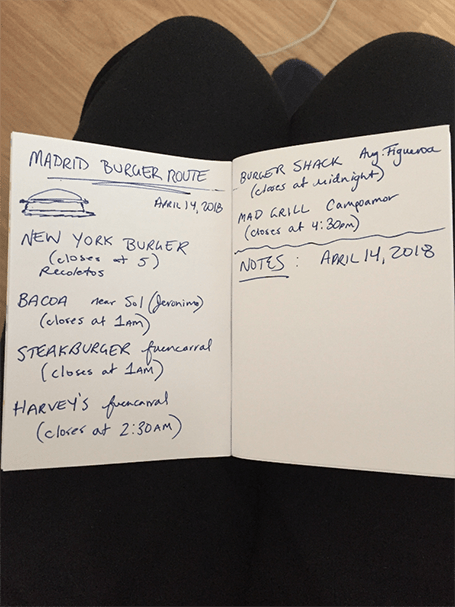 MADRID BURGER ROUTE
APRIL 14, 2018
NEW YORK BURGER
(closes at 5)
Recoletos
BACOA near Sol (Jeronimo)
(closes at 1AM)
STEAKBURGER fuencarral
(closes at 1AM)
HARVEY'S fuencarral
(closes at 2:30AM)
BURGER SHACK Aug. Figueroa
(closes at midnight)
MAD GRILL Campoamor
(closes at 4:30pm)
NOTES: APRIL 14, 2018